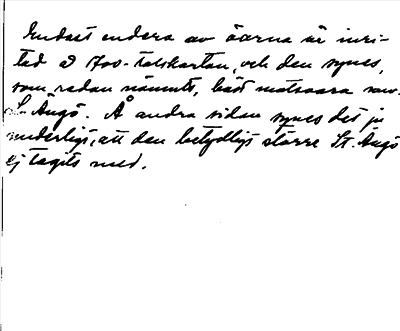 Endast endera av öarna är inri-
tad å 700-talskartan, och den synes,
som redan nämnts, bäst motsvara nuv.
L. Ängö. Å andra sidan synes det ju
underligt, att den betydligt större St. Ängö
ej tagits med.